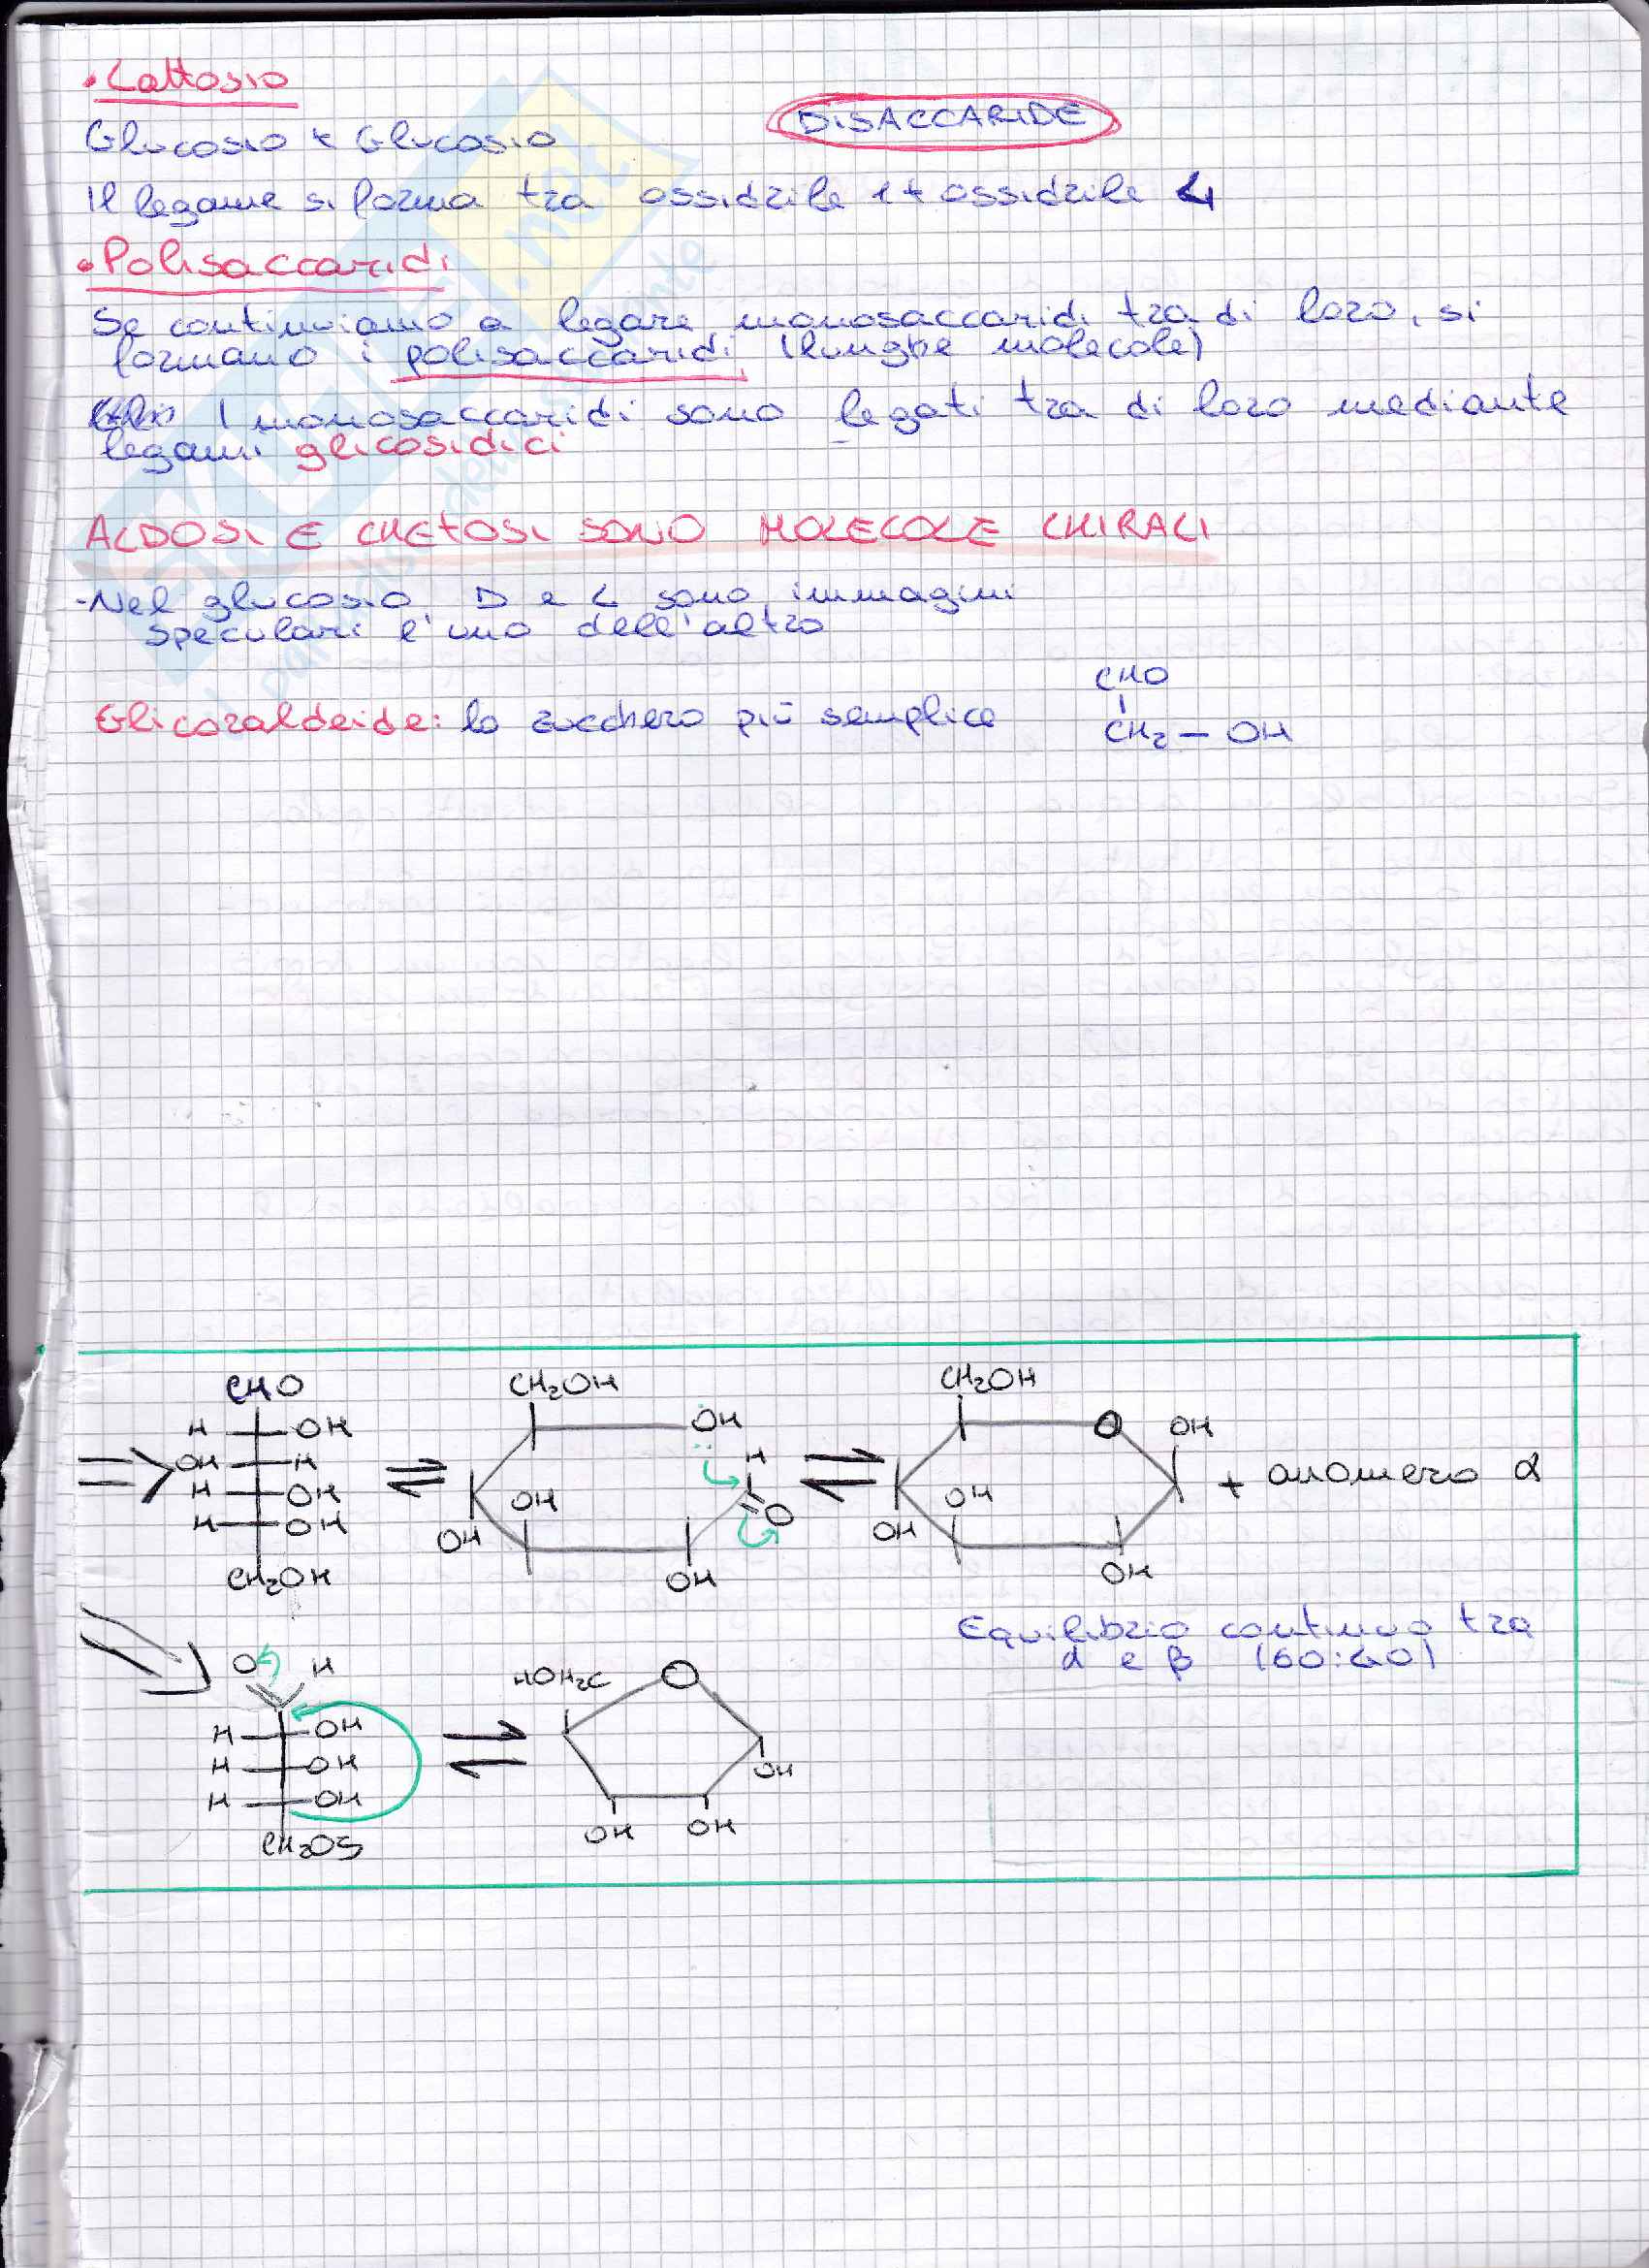 • Lattosio
DISACCARIDE
Glucosio + Glucosio
Il legame si forma tra ossidrile 1 + ossidrile 4
• Polisaccaridi
Se continuiamo a legare monosaccaridi tra di loro, si
formano i polisaccaridi (lunghe molecole)
I monosaccaridi sono legati tra di loro mediante
legami glicosidici
ALDOSI E CHETOSI SONO MOLECOLE CHIRALI
- Nel glucosio, D e L sono immagini
speculari l'uno dell'altro
CHO
Glicoraldeide: lo zucchero più semplice
CH2 — OH
CHO
H OH
OH H
H OH
H OH
CH2OH
CH2OH
OH
H
O
OH
OH
OH
CH2OH
O
OH
OH
OH
OH
+ anomero α
Equilibrio continuo tra
α e β (60:40)
O H
H OH
H OH
H OH
CH2OS
HOH2C
O
OH
OH OH